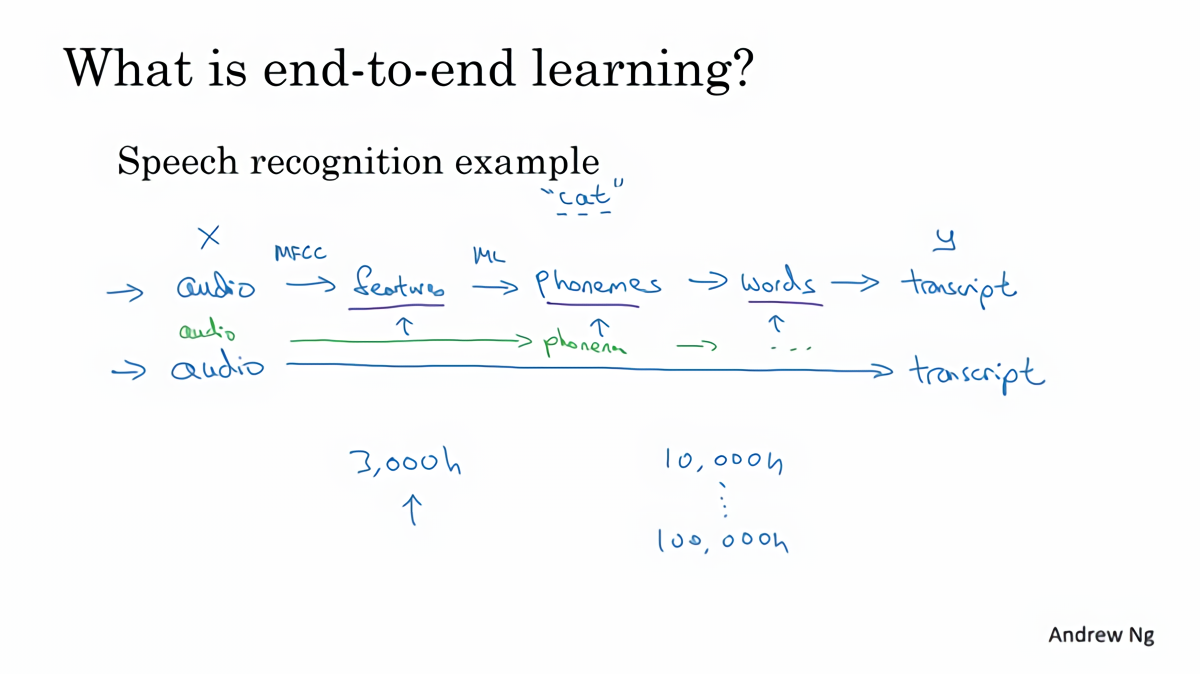 What is end-to-end learning?
Speech recognition example
"cat"
X MFCC ML y
→ audio → features → phonemes → words → transcript
audio → phonem → ...
→ audio → transcript
3,000h 10,000h
100,000h
Andrew Ng